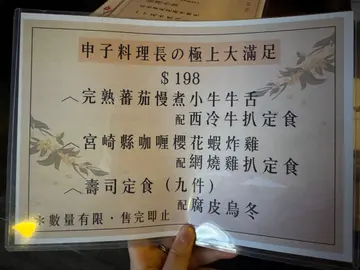 申子料理長の極上大滿足
$198
︿完熟蕃茄慢煮小牛牛舌
配西冷牛扒定食
︿宮崎縣咖喱櫻花蝦炸雞
配網燒雞扒定食
︿壽司定食（九件）
配腐皮烏冬
＊數量有限，售完即止